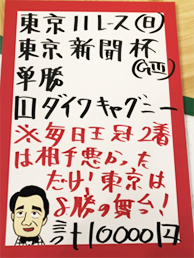 東京11レース㊐
東京新聞杯
GⅢ
単勝
1ダイワキャグニー
※毎日王冠2着
は相手悪かった
だけ！東京は
8勝の舞台！
計10000円